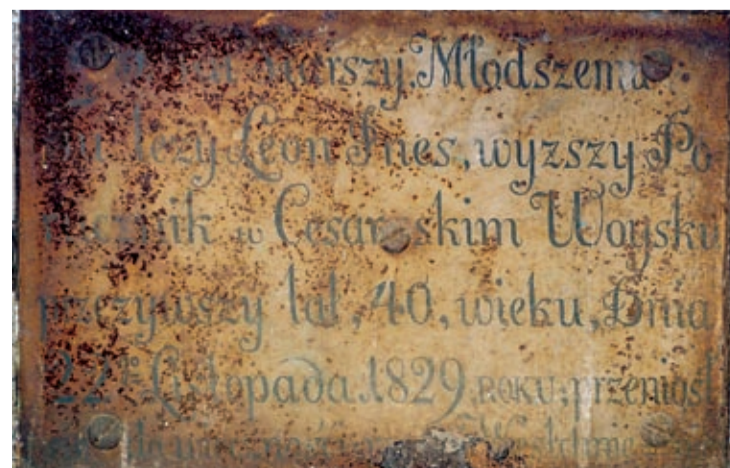 Starszy Młodszemu
tu leży Leon Ines, wyzszy Po-
rucznik w Cesarskim Woysku
przeżywszy lat, 40, wieku, Dnia
22 Listopada 1829 ROKU, przeniosł
do wieczności Westchnie